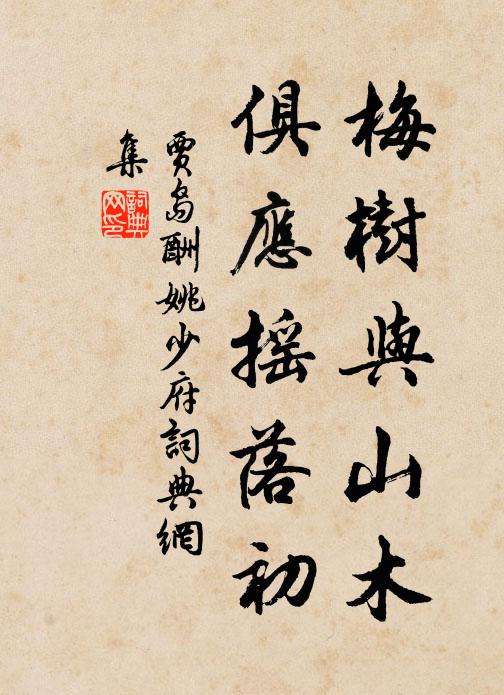 梅樹與山木
俱應搖落初
賈島酬姚少府詞典網
集
詞典
网印